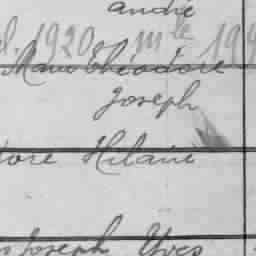 andré
1920. mle 19
Marie Théodore
Joseph
dore Hilaire
Joseph Yves